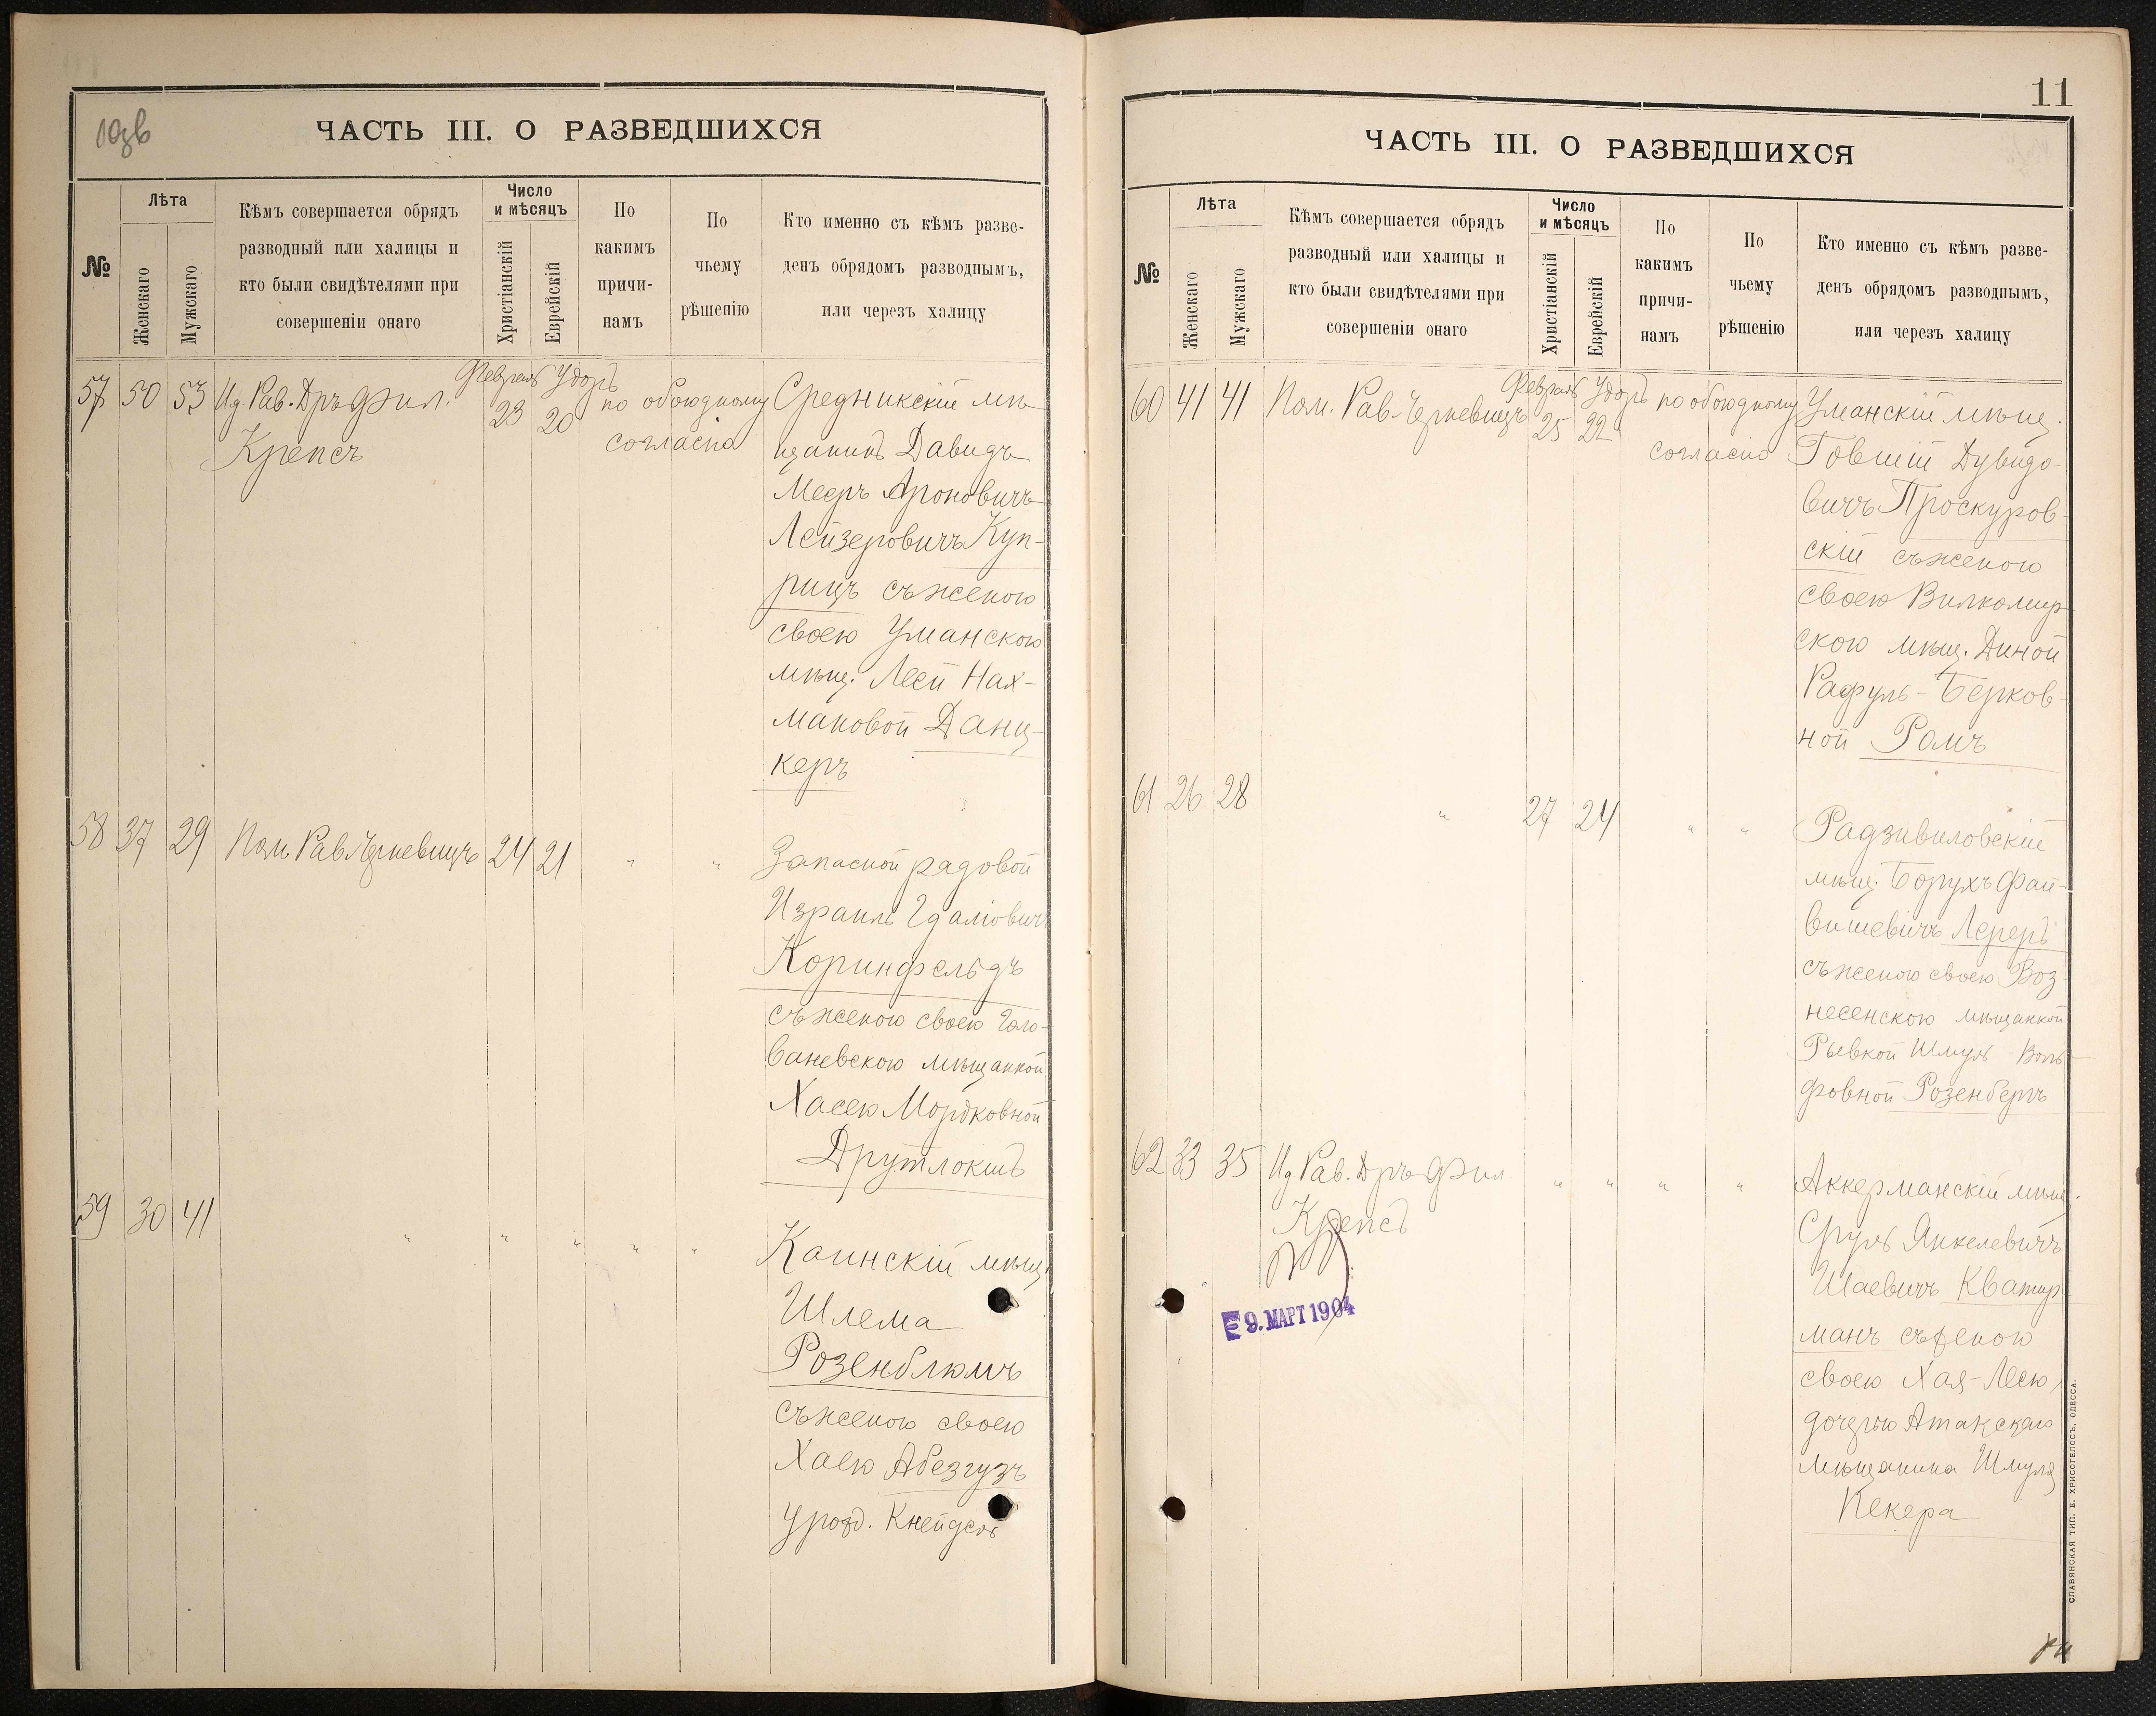 10зв
ЧАСТЬ III. О РАЗВЕДШИХСЯ
№
Лѣта
Женскаго
Мужскаго
Кѣмъ совершается обрядъ
разводный или халицы и
кто были свидѣтелями при
совершеніи онаго
Число
и мѣсяцъ
Христіанскій
Еврейскій
По
какимъ
причи-
намъ
По
чьему
рѣшенію
Кто именно съ кѣмъ разве-
денъ обрядомъ разводнымъ,
или черезъ халицу
57 50 53 Ид Рав. Дръ Фил.
Крепсъ
Февраль
23
20
по обоюдному
согласію
Средникскій мѣ-
щанинъ Давидъ
Мееръ Ароновичъ
Лейзеровичъ Куп-
рицъ съ женою
своею Уманскою
мѣщ. Леей Нах-
мановой Данц-
керъ
58 37 29 Пом Рав Черневицъ 24 21 " "
Запасной рядовой
Израиль Гдаліовичъ
Коринфельдъ
съ женою своею Голо-
ваневскою мѣщанкой
Хасею Мордковной
59 30 41 " " " " "
Каинскій мѣщ.
Шлема
Розенблюмъ
съ женою своею
Хаею Абезгузъ
урожд.
11
ЧАСТЬ III. О РАЗВЕДШИХСЯ
№
Лѣта
Женскаго
Мужскаго
Кѣмъ совершается обрядъ
разводный или халицы и
кто были свидѣтелями при
совершеніи онаго
Число
и мѣсяцъ
Христіанскій
Еврейскій
По
какимъ
причи-
намъ
По
чьему
рѣшенію
Кто именно съ кѣмъ разве-
денъ обрядомъ разводнымъ,
или черезъ халицу
60 41 41 Пом. Рав. Черневицъ
Февраль
25
22
по обоюдному
согласію
Уманскій мѣщ.
Говшій Дувидо-
вичъ Проскуров-
скій съ женою
своею Вилкомир-
скою мѣщ. Диной
Рафуль-Берков-
ной Ромъ
61 26 28 " 27 24 " "
Радзивиловскій
мѣщ. Борухъ Фай-
вишевичъ Лереръ
съ женою своею Воз
несенскою мѣщанкой
Рывкой Шмуль-Воль
фовной Розенбергъ
62 33 35 Ид Рав. Дръ Фил
Крепсъ
" " " "
Аккерманскій мѣщ.
Сруль Янкелевичъ
Шаевичъ Кватир
манъ съ женою
своею Хая-Леею,
дочерью Атакскаго
мѣщанина Шмуля
Пекера
9. МАРТ 1904
СЛАВЯНСКАЯ ТИП. Е. ХРИСОГЕЛОСЪ, ОДЕССА.